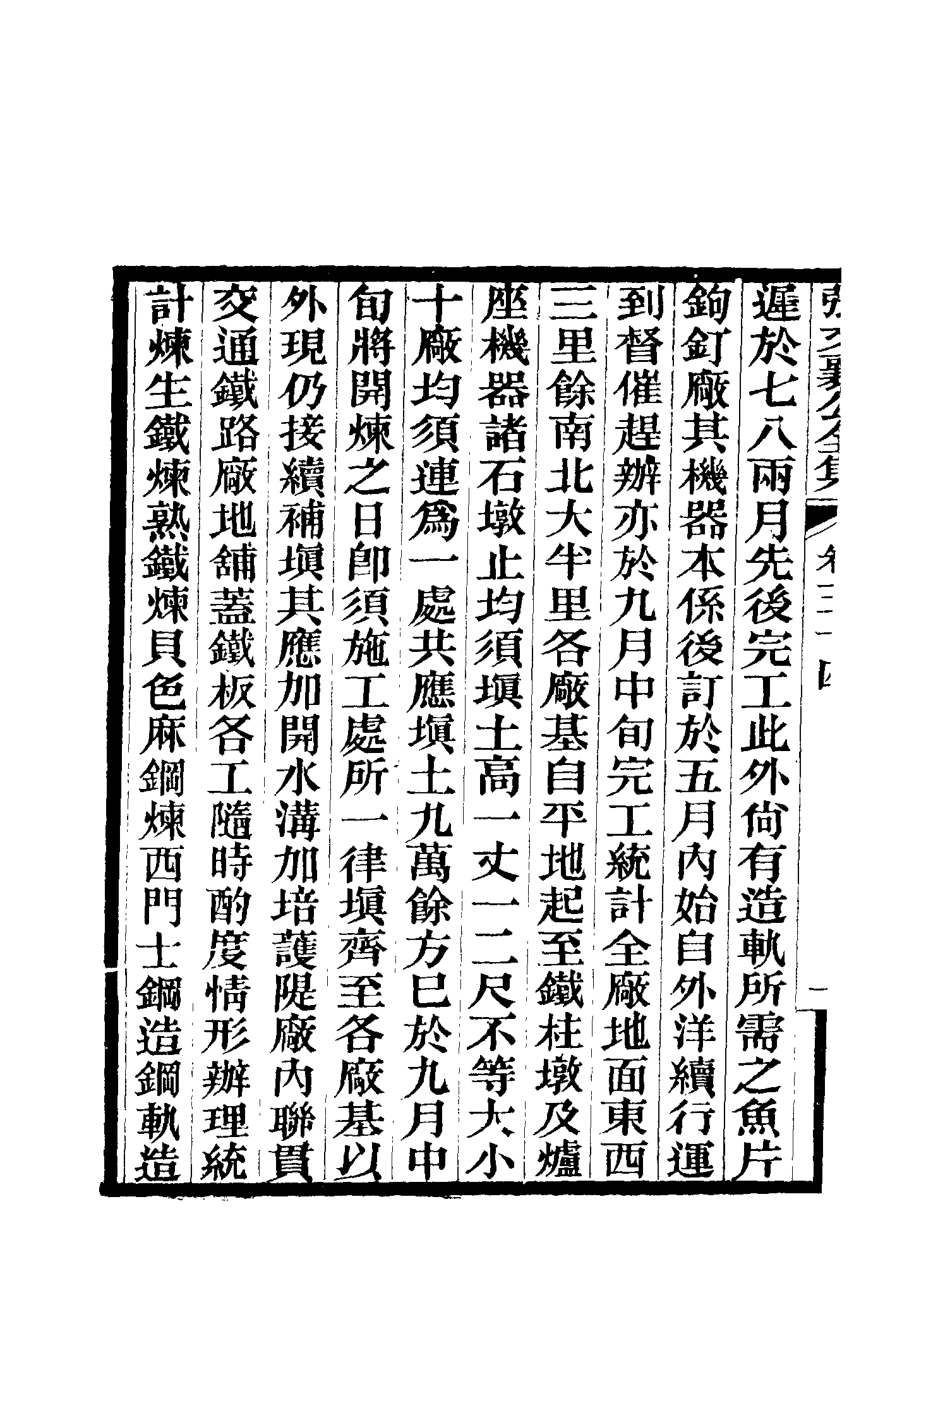 張文襄公全集 卷三十四 一
遲於七八兩月先後完工此外尙有造軌所需之魚片
鉤釘廠其機器本係後訂於五月內始自外洋續行運
到督催趕辦亦於九月中旬完工統計全廠地面東西
三里餘南北大半里各廠基自平地起至鐵柱墩及爐
座機器諸石墩止均須塡土高一丈一二尺不等大小
十廠均須連爲一處共應塡土九萬餘方已於九月中
旬將開煉之日卽須施工處所一律塡齊至各廠基以
外現仍接續補塡其應加開水溝加培護隄廠內聯貫
交通鐵路廠地舖蓋鐵板各工隨時酌度情形辦理統
計煉生鐵煉熟鐵煉貝色麻鋼煉西門士鋼造鋼軌造